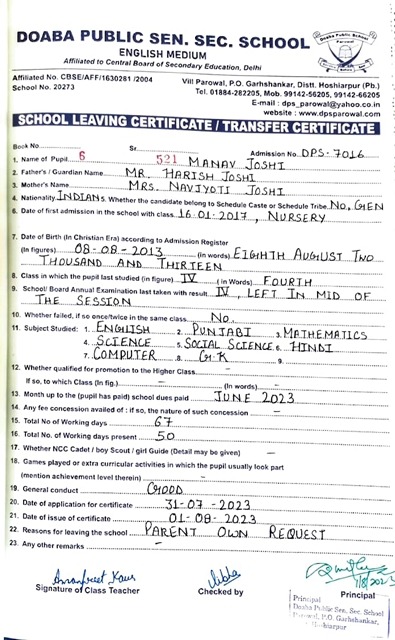 DOABA PUBLIC SEN. SEC. SCHOOL
ENGLISH MEDIUM
Affiliated to Central Board of Secondary Education, Delhi
Doaba Public School
Parowal
Affiliated No. CBSE/AFF/1630281 /2004
School No. 20273
Vill Parowal, P.O. Garhshankar, Distt. Hoshiarpur (Pb.)
Tel. 01884-282205, Mob. 99142-56205, 99142-66205
E-mail : dps_parowal@yahoo.co.in
website : www.dpsparowal.com
SCHOOL LEAVING CERTIFICATE / TRANSFER CERTIFICATE
Book No. 6 Sr. 521 Admission No. DPS-7016
1. Name of Pupil MANAV JOSHI
2. Father's / Guardian Name MR. HARISH JOSHI
3. Mother's Name MRS. NAVJYOTI JOSHI
4. Nationality INDIAN 5. Whether the candidate belong to Schedule Caste or Schedule Tribe NO, GEN
6. Date of first admission in the school with class 16.01.2017, NURSERY
7. Date of Birth (In Christian Era) according to Admission Register
(In figures) 08-08-2013 (In words) EIGHTH AUGUST TWO
THOUSAND AND THIRTEEN
8. Class in which the pupil last studied (in figure) IV (in Words) FOURTH
9. School/ Board Annual Examination last taken with result IV, LEFT IN MID OF
THE SESSION
10. Whether failed, if so once/twice in the same class NO
11. Subject Studied: 1. ENGLISH 2. PUNJABI 3. MATHEMATICS
4. SCIENCE 5. SOCIAL SCIENCE 6. HINDI
7. COMPUTER 8. G.K 9.
12. Whether qualified for promotion to the Higher Class -
If so, to which Class (In fig.) - (In words) -
13. Month up to the (pupil has paid) school dues paid JUNE 2023
14. Any fee concession availed of : if so, the nature of such concession -
15. Total No of Working days 67
16. Total No. of Working days present 50
17. Whether NCC Cadet / boy Scout / girl Guide (Detail may be given) -
18. Games played or extra curricular activities in which the pupil usually look part
(mention achievement level therein) -
19. General conduct GOOD
20. Date of application for certificate 31-07-2023
21. Date of issue of certificate 01-08-2023
22. Reasons for leaving the school PARENT OWN REQUEST
23. Any other remarks -
Amanpreet Kaur
1/8/2023
Signature of Class Teacher
Checked by
Principal
Principal
Doaba Public Sen. Sec. School
Parowal, P.O. Garhshankar,
Hoshiarpur